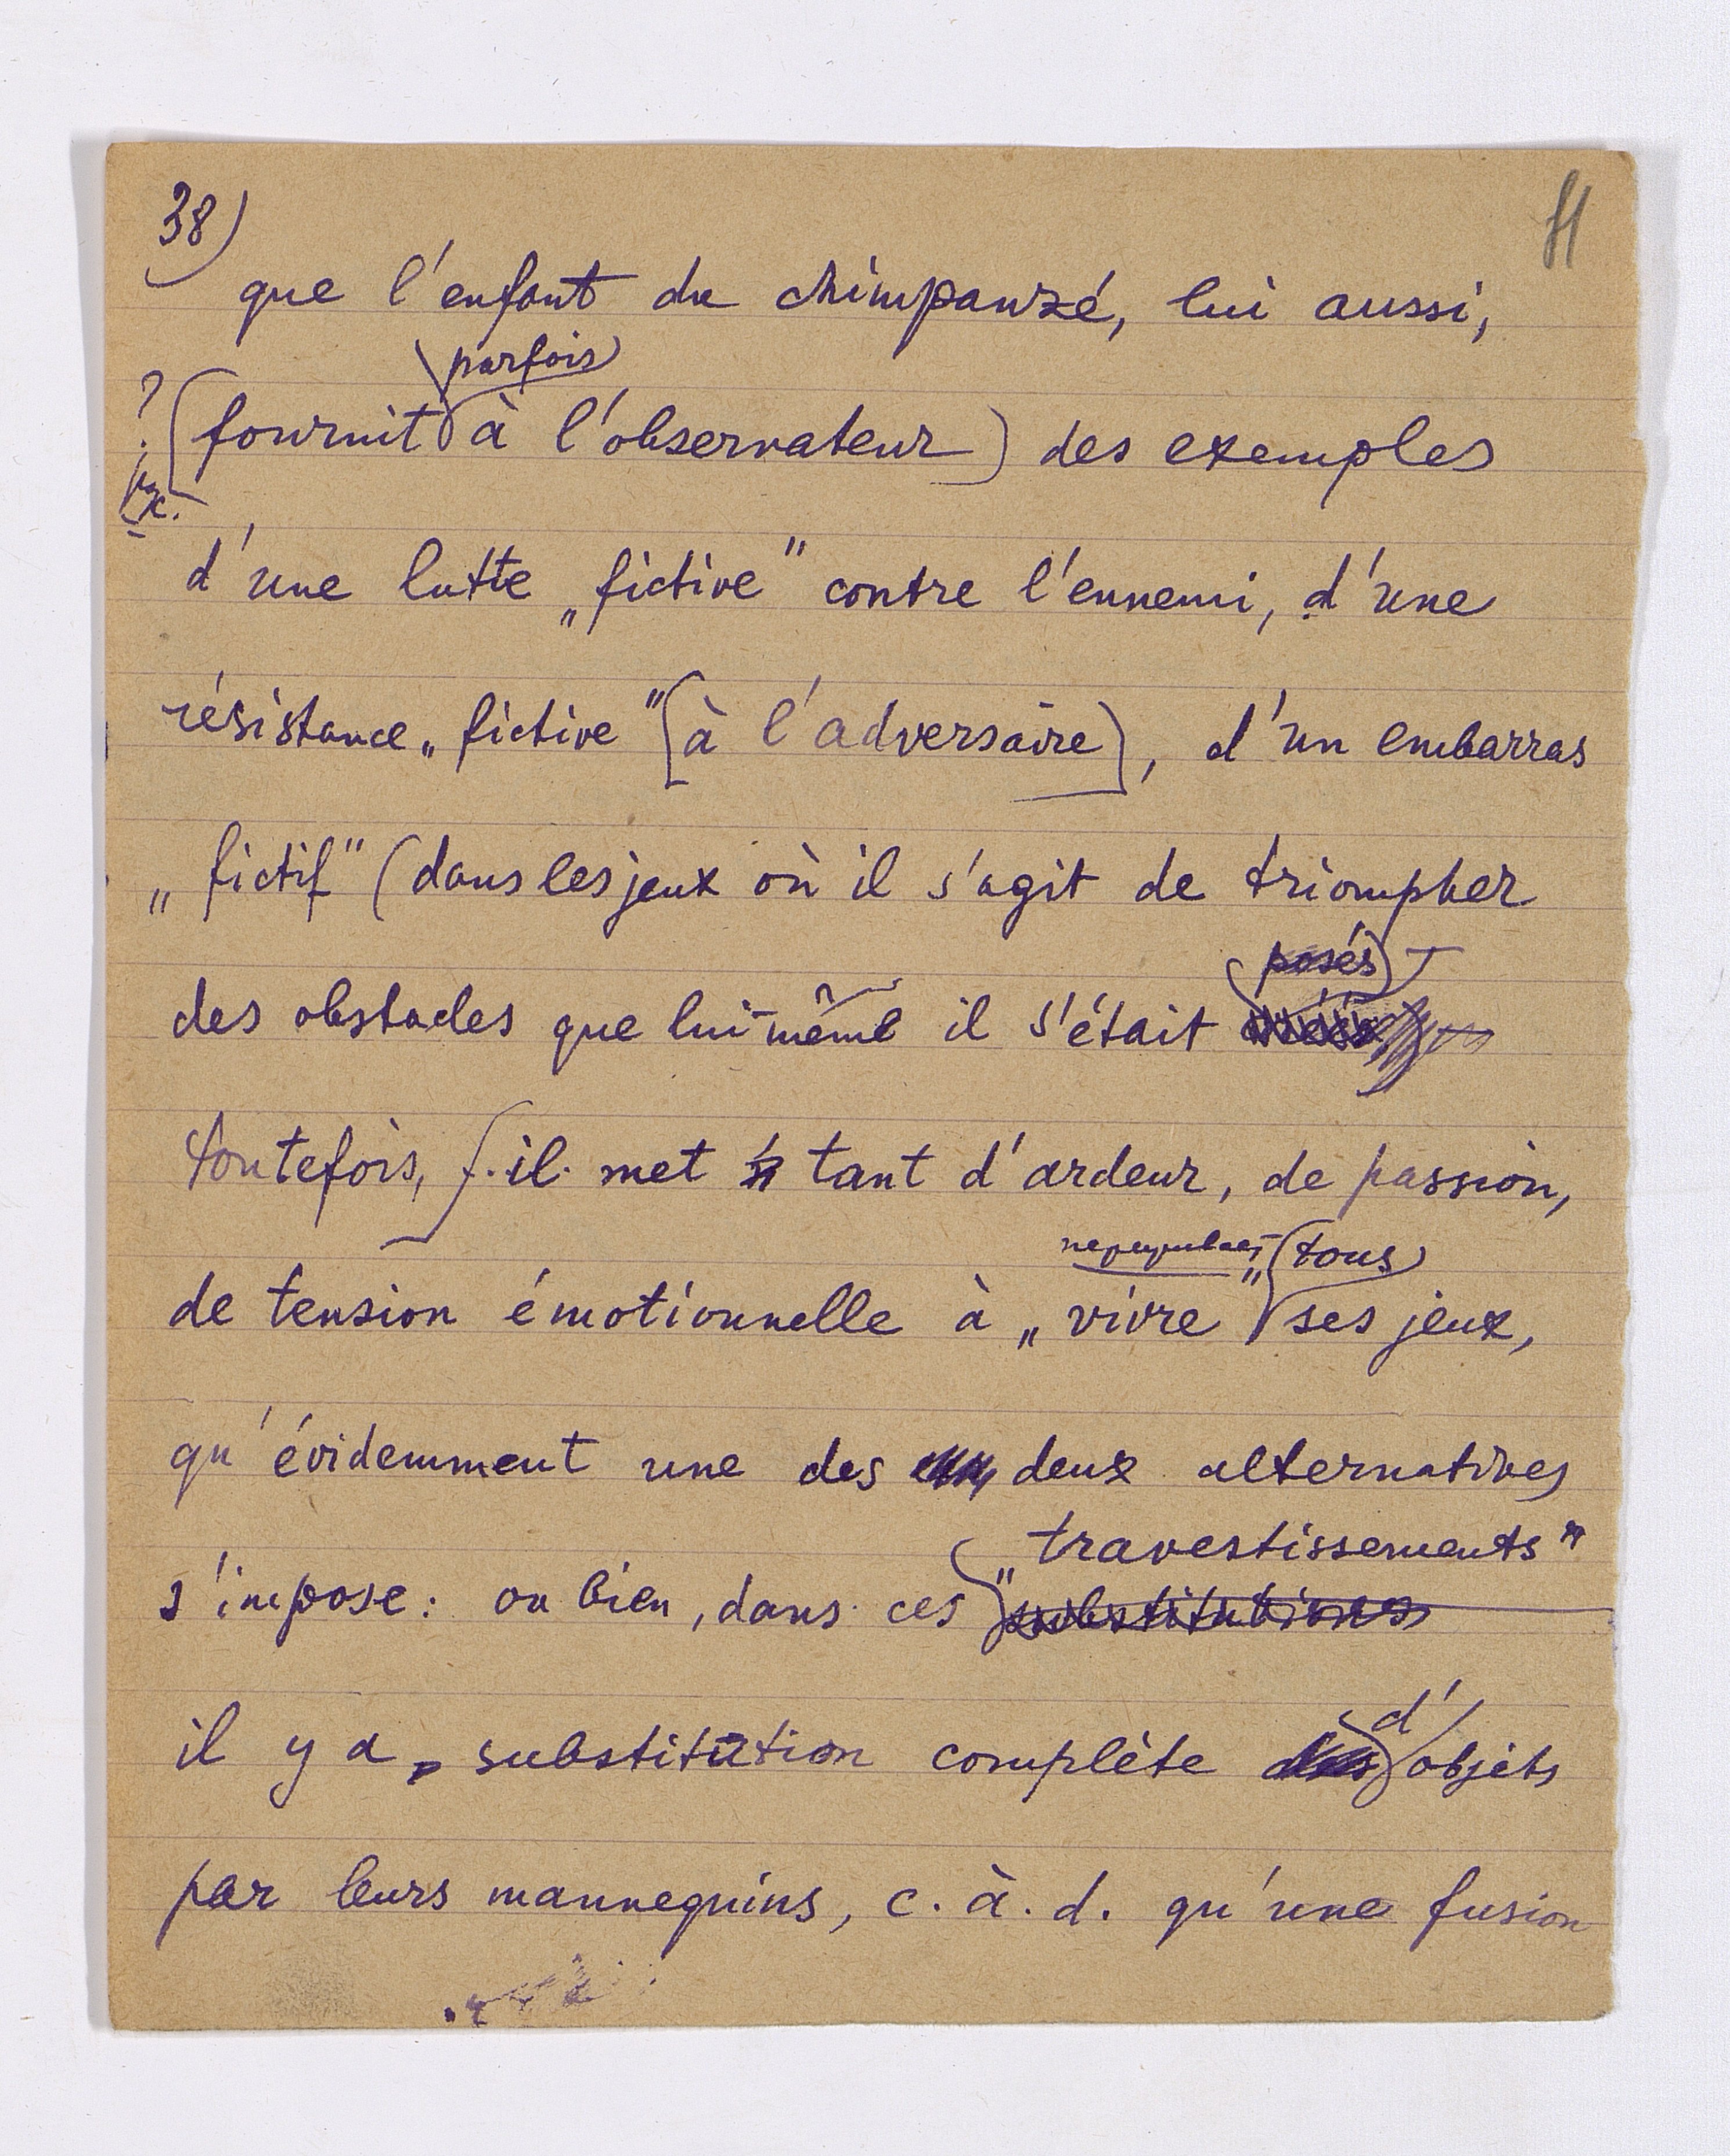 38)
que l'enfant du chimpanzé, lui aussi,
parfois
? (fournit à l'observateur) des exemples
d'une lutte „fictive" contre l'ennemi, d'une
résistance „fictive" [à l'adversaire], d'un embarras
„fictif" (dans les jeux où il s'agit de triompher
posés)
des obstacles que lui-même il s'était
toutefois, il met tant d'ardeur, de passion,
tous
de tension émotionnelle à „vivre" ses jeux,
qu'évidemment une des deux alternatives
„travestissements"
s'impose: ou bien, dans ces substitutions
d'
il y a substitution complète objets
par leurs mannequins, c. à. d. qu'une fusion